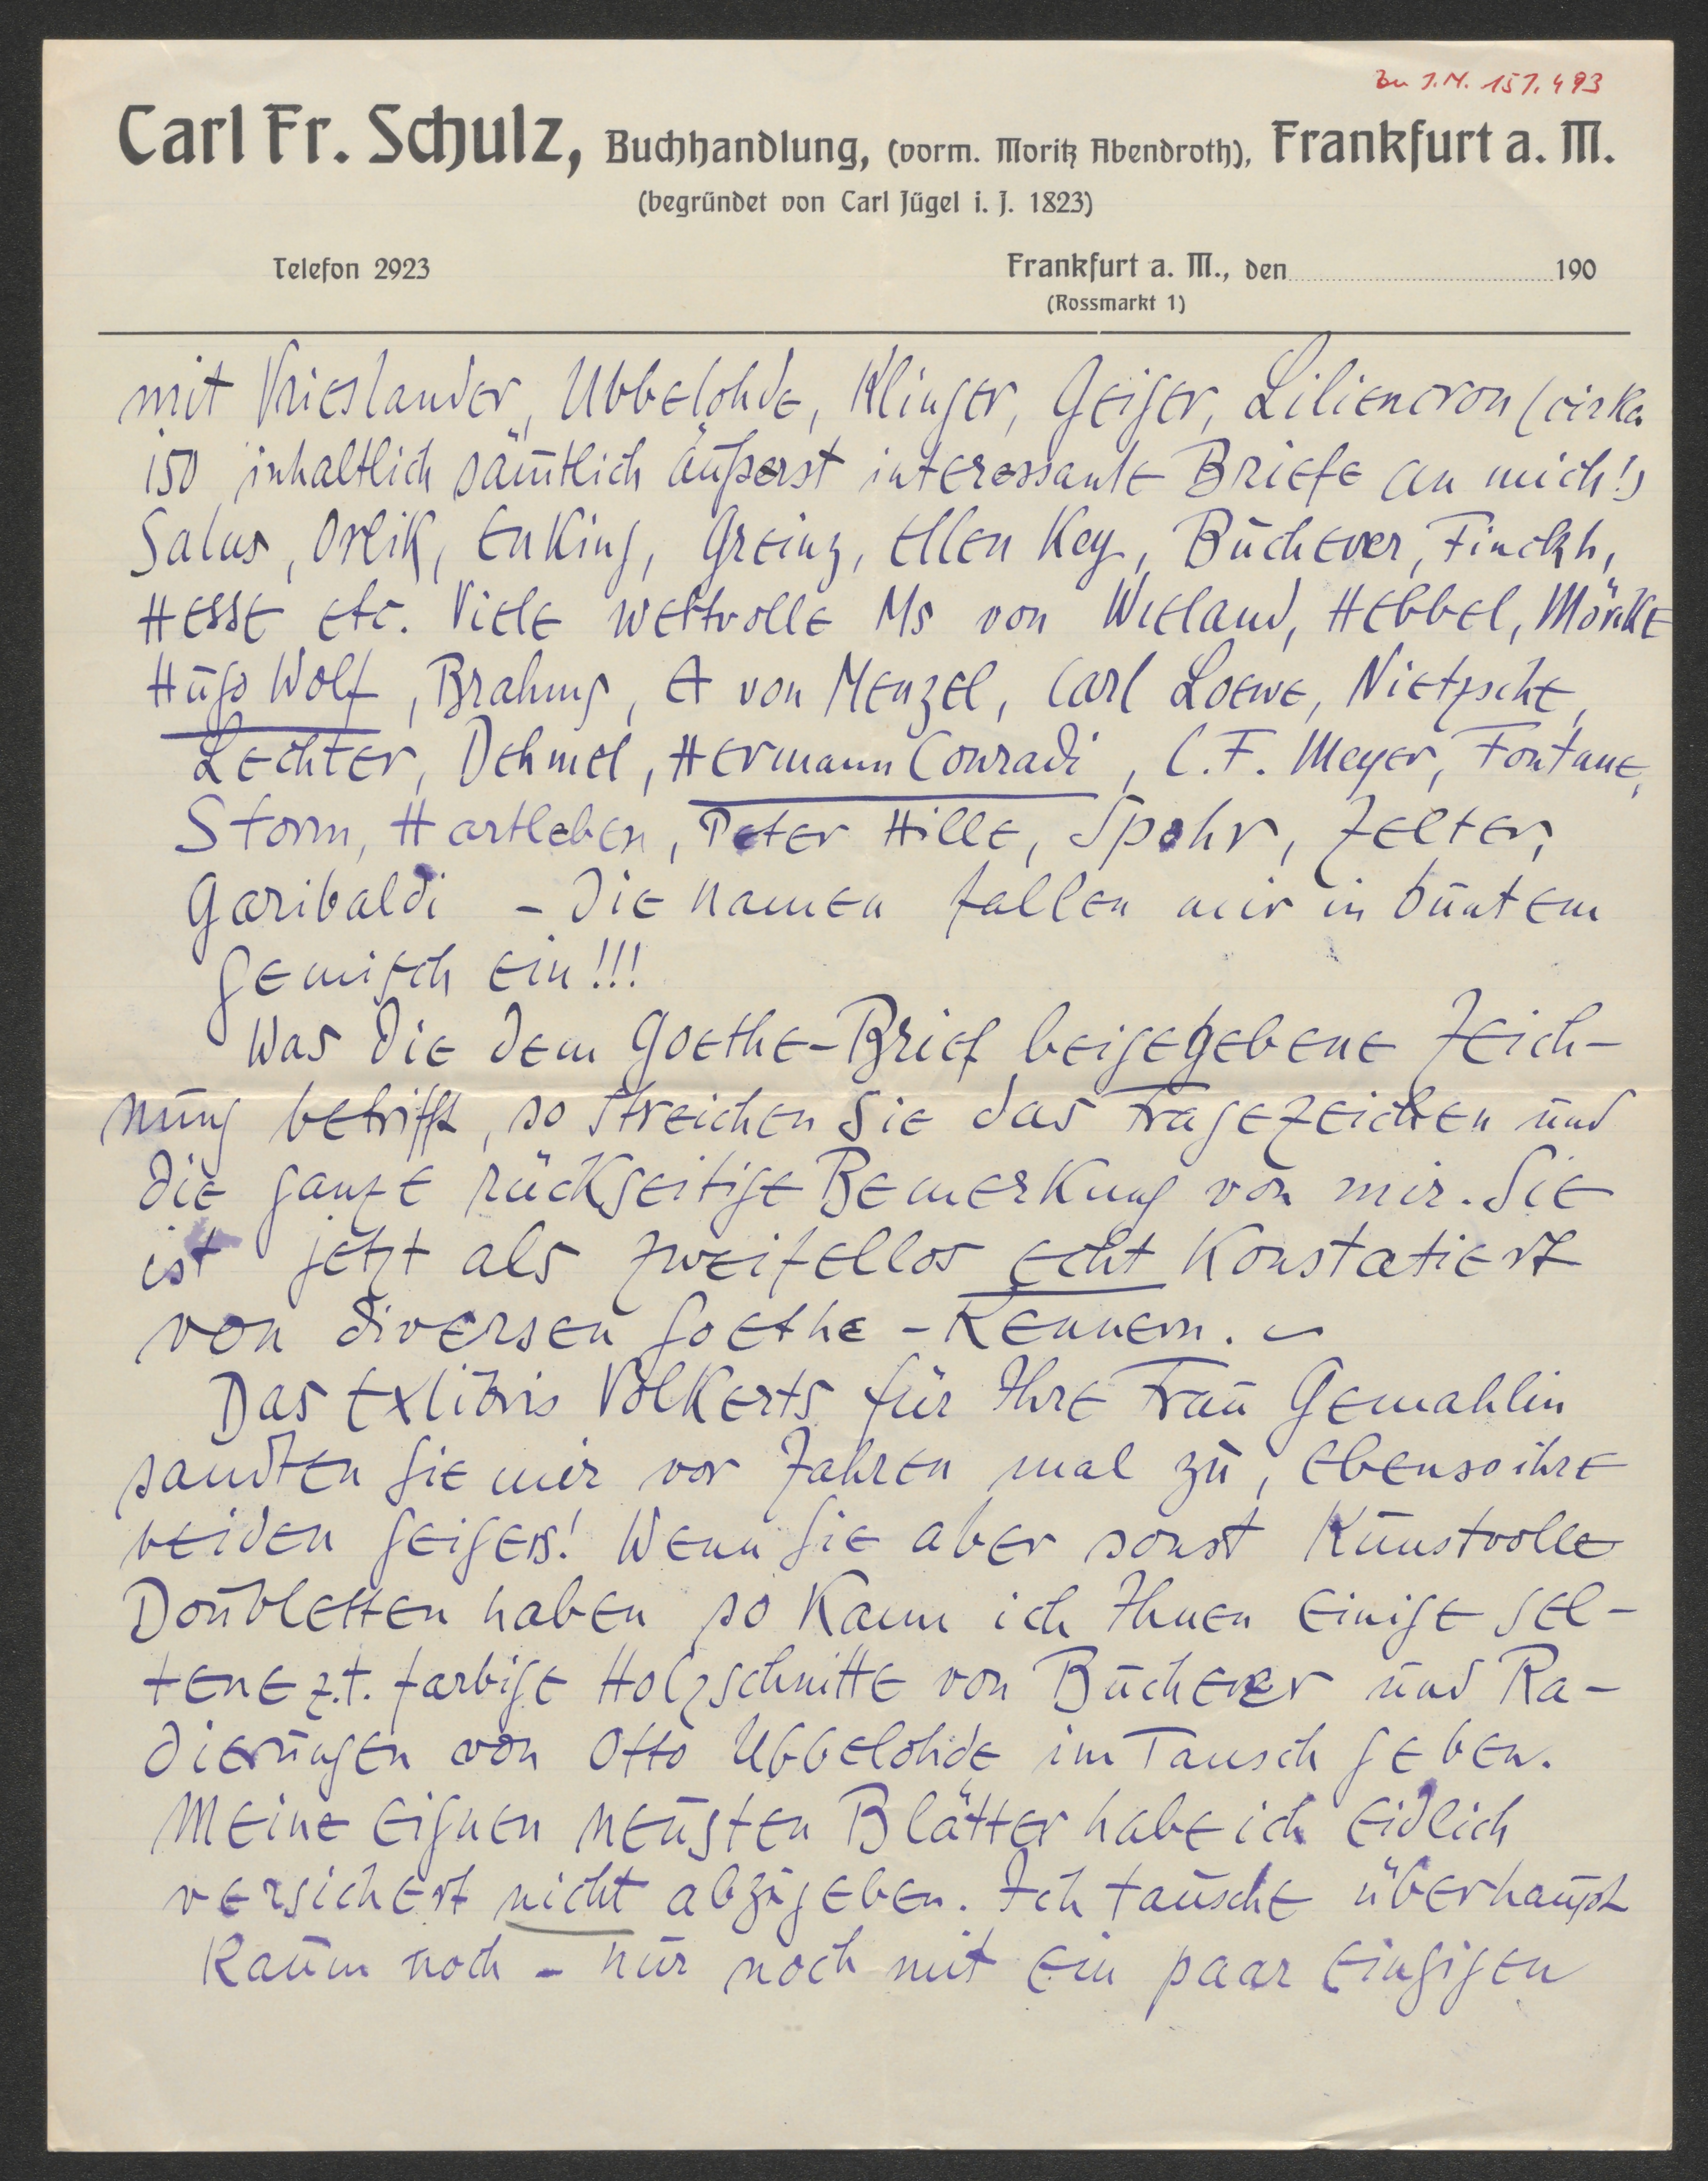 Zu I.N. 157.493
Carl Fr. Schulz, Buchhandlung, (vorm. Moritz Abendroth), Frankfurt a. M.
(begründet von Carl Jügel i. J. 1823)
Telefon 2923
Frankfurt a. M., den 190
(Rossmarkt 1)
mit Vrieslander, Ubbelohde, Klinger, Geiger, Liliencron (cirka
150 inhaltlich sämtlich äußerst interessante Briefe an mich!)
Salus, Orlik, Enking, Greinz, Ellen Key, Bücherer, Finckh,
Hesse etc. Viele wertvolle Ms von Wieland, Hebbel, Mörike
Hugo Wolf, Brahms, A von Menzel, Carl Loewe, Nietzsche,
Lechter, Dehmel, Hermann Conradi, C. F. Meyer, Fontane,
Storm, Hartleben, Peter Hille, Spohr, Zelter,
Garibaldi – Die Namen fallen mir in buntem
Gemisch ein!!!
Was die dem Goethe-Brief beigegebene Zeich-
nung betrifft, so streichen Sie das Fragezeichen und
die ganze rückseitige Bemerkung von mir. Sie
ist jetzt als zweifellos echt konstatiert
von diversen Goethe-Kennern. –
Das Exlibris Volkerts für Ihre Frau Gemahlin
sandten Sie mir vor Jahren mal zu, ebenso ihre
beiden Geigers! Wenn Sie aber sonst kunstvolle
Doubletten haben so kann ich Ihnen einige sel-
tene z.t. farbige Holzschnitte von Bücherer und Ra-
dierungen von Otto Ubbelohde im Tausch geben.
Meine eignen neusten Blätter habe ich eidlich
versichert nicht abzugeben. Ich tausche überhaupt
kaum noch – nur noch mit ein paar einzigen